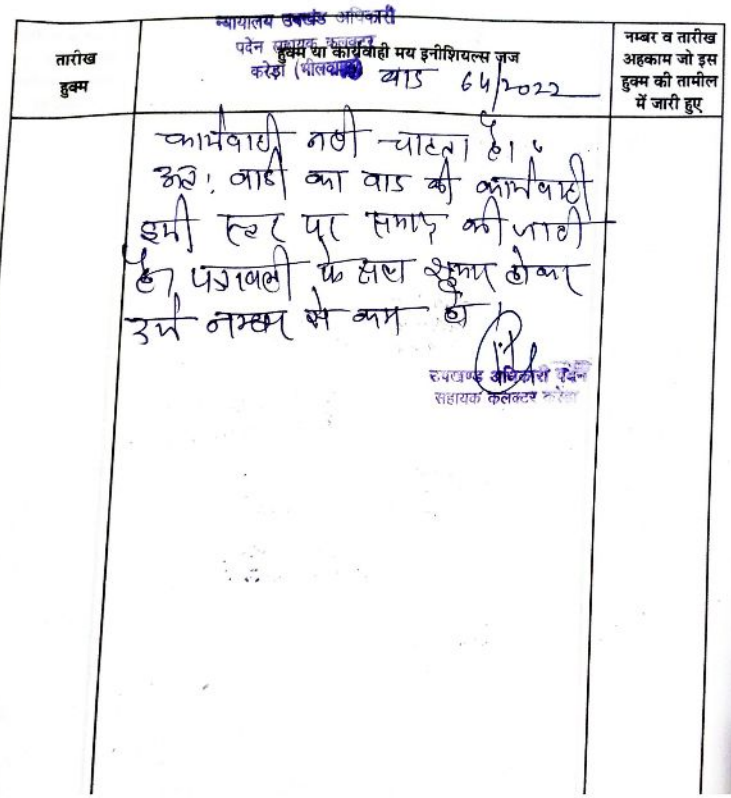 न्यायालय उपखंड अधिकारी
पदेन सहायक कलक्टर
करेड़ा (भीलवाड़ा)
तारीख
हुक्म
हुक्म या कार्यवाही मय इनीशियल्स जज
वाद 64/2022
नम्बर व तारीख
अहकाम जो इस
हुक्म की तामील
में जारी हुए
कार्यवाही नही चाहता है।
अतः वादी का वाद की कार्यवाही
इसी स्तर पर समाप्त की जाती
है। पत्रावली फैसल शुमार होकर
दर्ज नम्बर से कम हो।
उपखण्ड अधिकारी पदेन
सहायक कलक्टर करेड़ा